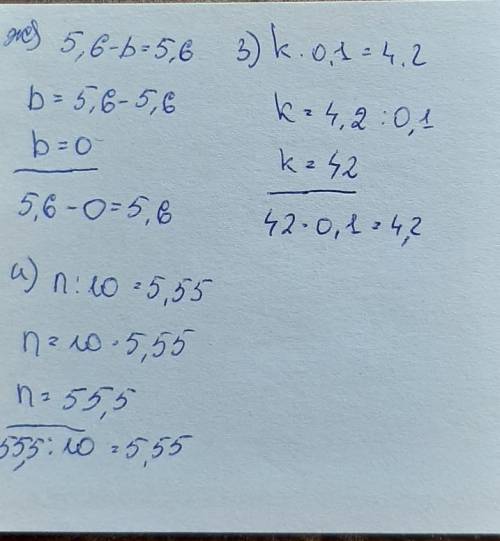 ж) 5,6-b=5,6
b=5,6-5,6
b=0
5,6-0=5,6
з) k·0,1=4,2
k=4,2:0,1
k=42
42·0,1=4,2
и) n:10=5,55
n=10·5,55
n=55,5
55,5:10=5,55